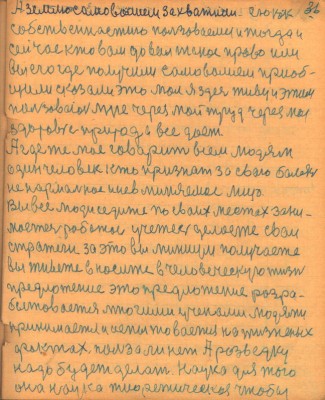 А землю самовольем захватили. Её как
собственностью пользовались и тогда и
сейчас кто вам довел такое право или
вы его где получили самовольем приоб-
щили сказали это мол я здесь живу и этим
пользоваюсь мре через мой труд через мое
здоровье природа все дает.
А где те мое говорить всем людям
один человек есть признат за свою болезнь
не нормальное и невминяемое лицо.
Вы все люди седите по своих местах зани-
маетесь работою учетесь делаете свои
стратеги за это вы минуси получаете
вы пишете вносите в человеческую жизнь
предлотение это предлотение разра-
батовается многими учеными людями
принимается и испытовается на жизненых
фактах польза ли нет А розведку
надо будет делат. Наука для того
она наука тиоретическоя чтобы